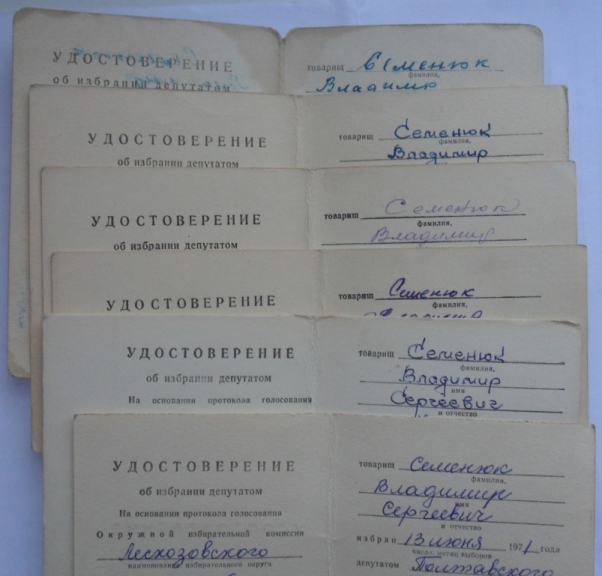 УДОСТОВЕРЕНИЕ
об избрании депутатом
товарищ Семенюк
фамилия,
Владимир
УДОСТОВЕРЕНИЕ
об избрании депутатом
товарищ Семенюк
фамилия,
Владимир
УДОСТОВЕРЕНИЕ
об избрании депутатом
товарищ Семенюк
фамилия,
Владимир
УДОСТОВЕРЕНИЕ
товарищ Семенюк
фамилия,
УДОСТОВЕРЕНИЕ
об избрании депутатом
На основании протокола голосования
товарищ Семенюк
фамилия,
Владимир
имя
Сергеевич
и отчество
УДОСТОВЕРЕНИЕ
об избрании депутатом
На основании протокола голосования
Окружной избирательной комиссии
Лесхозовского
наименование избирательного округа
товарищ Семенюк
фамилия,
Владимир
имя
Сергеевич
и отчество
избран 13 июня 1971 года
число, месяц выборов
депутатом Полтавского